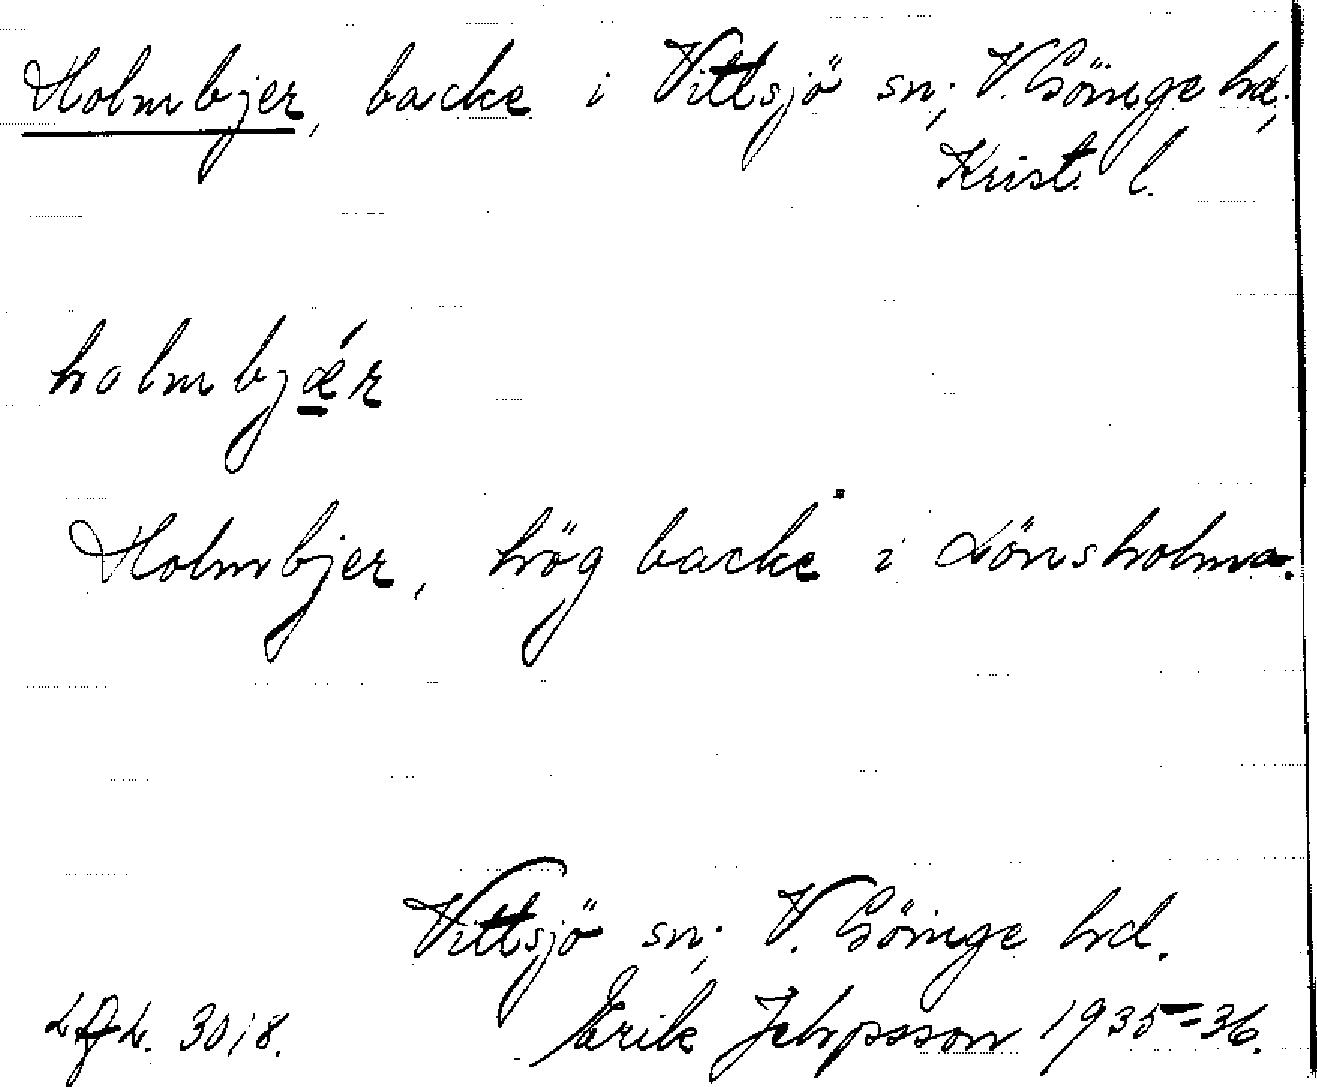 Holmbjer, backe i Vittsjö sn; V. Göinge hd;
Krist. l.
holmbjǽr
Holmbjer, hög backe i Lönsholma.
Vittsjö sn; V. Göinge hd.
3018. Erik Jeppsson 1935-36.